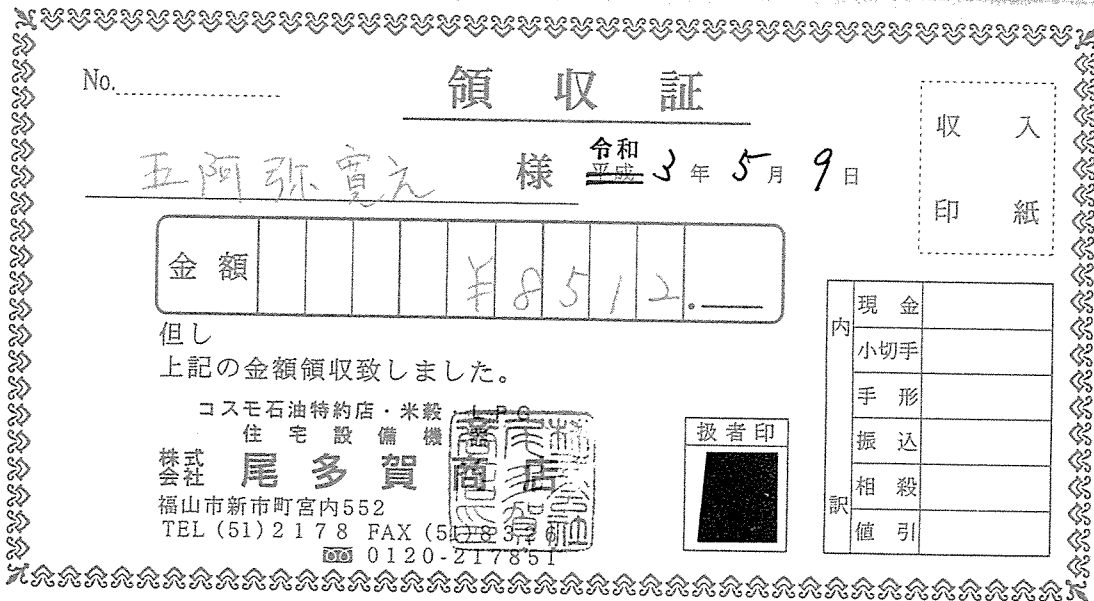 No.
領収証
五阿弥寛之 様
令和 平成 3年 5月 9日
収入
印紙
金額 ¥8512.
但し
上記の金額領収致しました。
コスモ石油特約店・米穀・LPG
住宅設備機器
株式会社 尾多賀商店
福山市新市町宮内552
TEL (51) 2178 FAX (51) 8326
0120-217851
扱者印
内訳
現金
小切手
手形
振込
相殺
値引